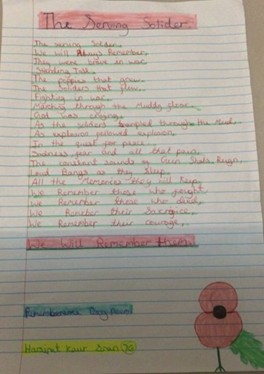 The Serving Solider
The serving Solider.
We will Always Remember.
They were brave in war.
Standing Tall.
The poppies that grow.
The Soldiers that flow.
Fighting in war.
Marching through the Muddy floor.
God was crying.
As the soldiers through the Mud.
As explosion followed explosion
In the quest for peace.
Sadness, fear and all that pain.
The constant sounds of Gun Shots Reign.
Loud Bangs as they Sleep.
All the Memories they will keep.
We Remember those who fought.
We Remember those who died.
We Remeber their Sacrafice.
We Remember their courage.
We Will Remember them!
Rememberance Day Poem
Harpreet Kaur